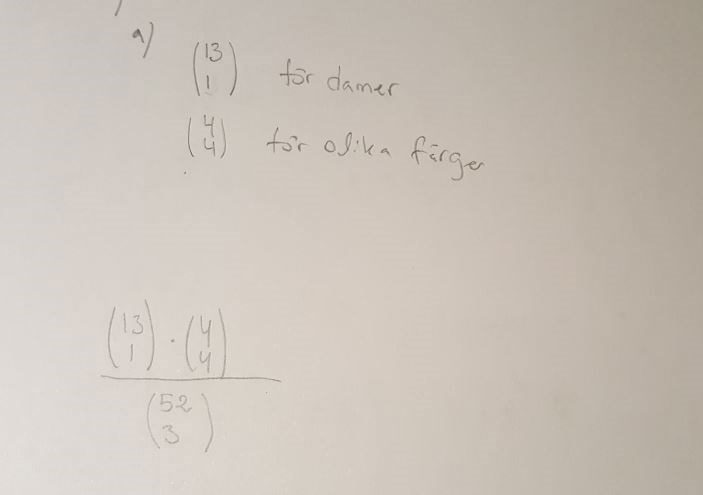 a)
(13
1) för damer
(4
4) för olika färger
(13
1) · (4
4)
(52
3)